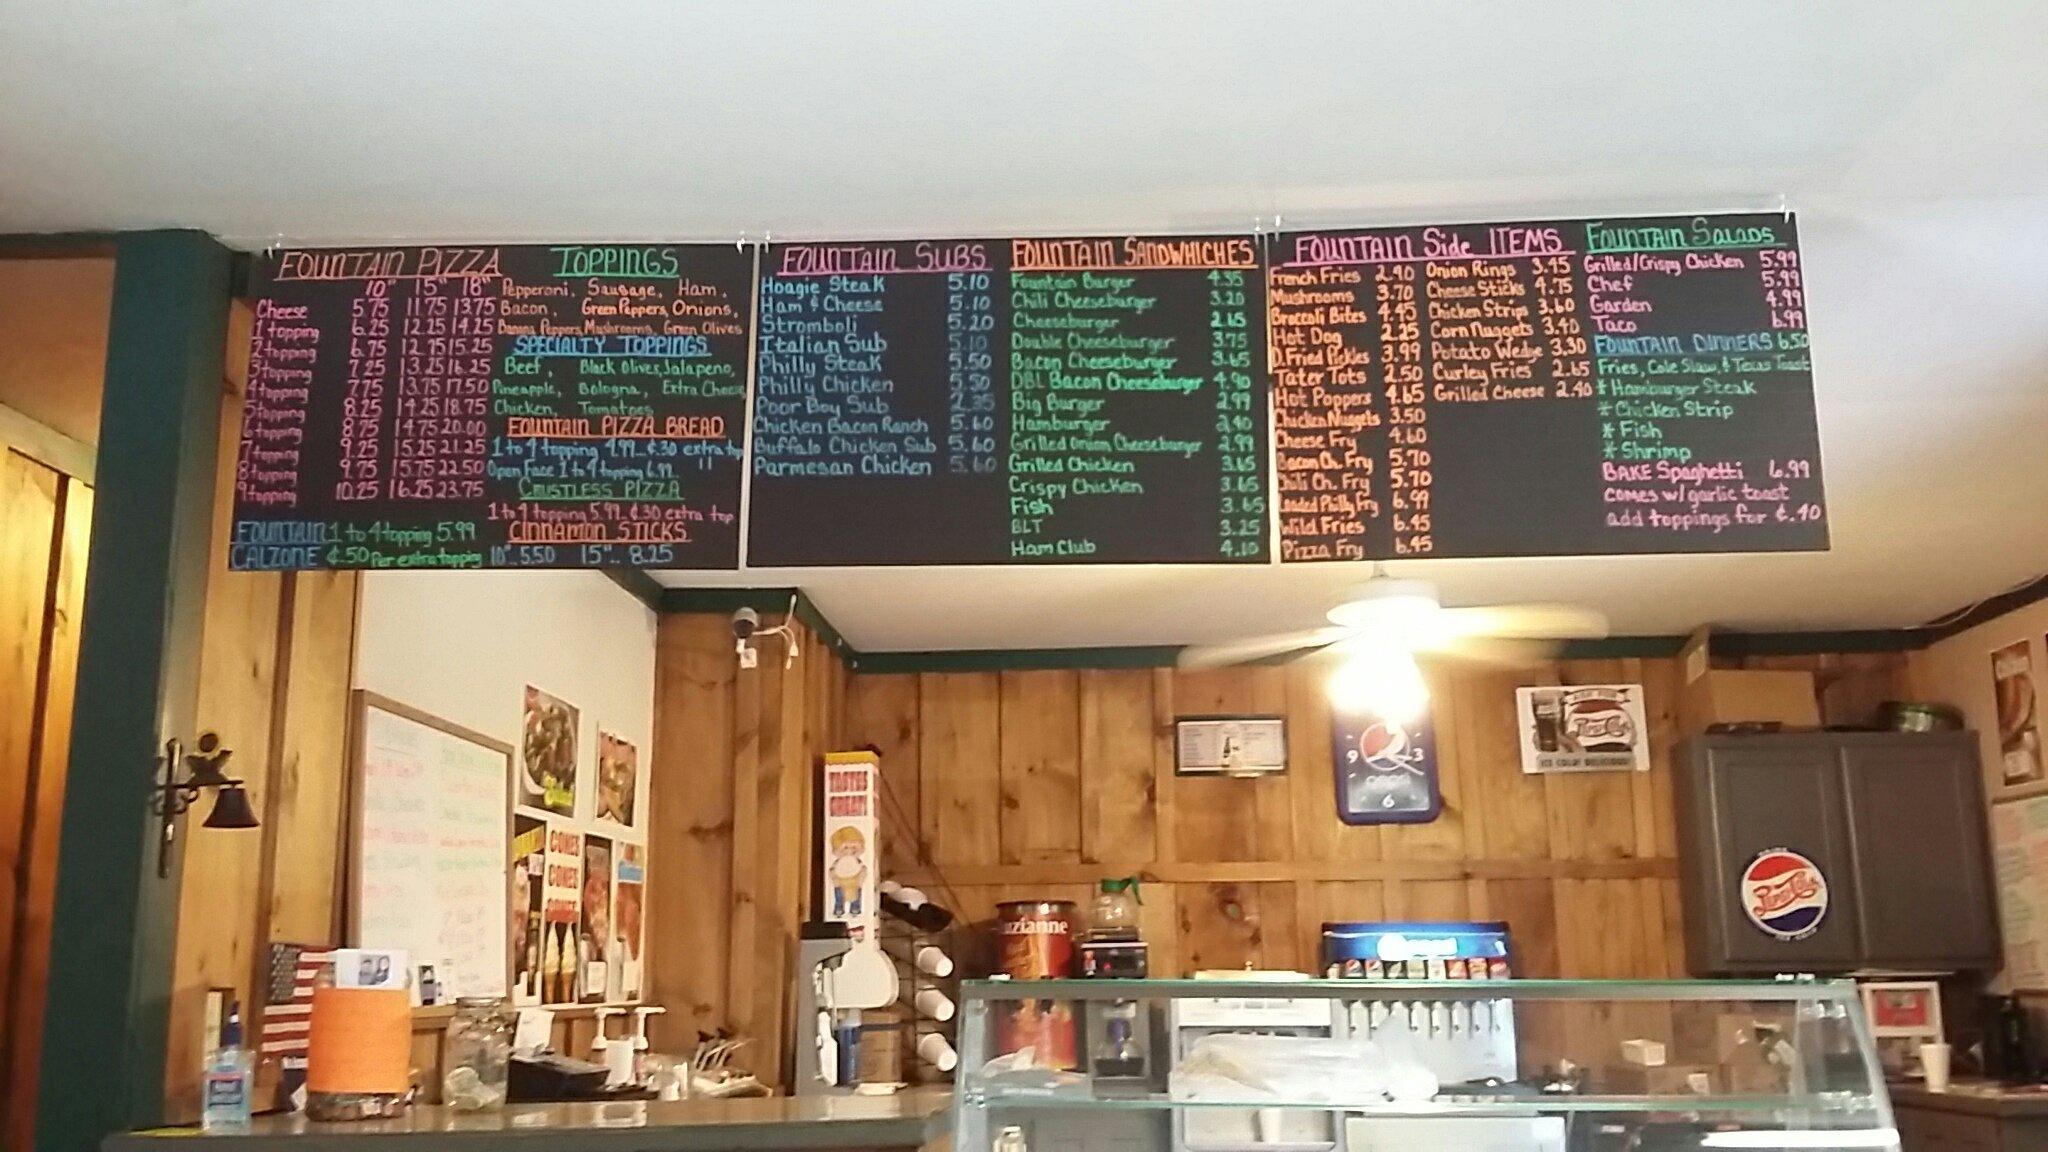 FOUNTAIN PIZZA
10" 15" 18"
Cheese 5.75 11.75 13.75
1 topping 6.25 12.25 14.25
2 topping 6.75 12.75 15.25
3 topping 7.25 13.25 16.25
4 topping 7.75 13.75 17.50
5 topping 8.25 14.25 18.75
6 topping 8.75 14.75 20.00
7 topping 9.25 15.25 21.25
8 topping 9.75 15.75 22.50
9 topping 10.25 16.25 23.75
FOUNTAIN 1 to 4 topping 5.99
CALZONE ¢.50 Per extra topping
TOPPINGS
Pepperoni, Sausage, Ham,
Bacon, Green Peppers, Onions,
Banana Peppers, Mushrooms, Green Olives
SPECIALTY TOPPINGS
Beef, Black Olives, Jalapeno,
Pineapple, Bologna, Extra Cheese,
Chicken, Tomatoes
FOUNTAIN PIZZA BREAD
1 to 4 topping 4.99 ¢.30 extra top
Open Face 1 to 4 topping 6.99 "
CRUSTLESS PIZZA
1 to 4 topping 5.99 ¢.30 extra top
CINNAMON STICKS
10".. 5.50 15".. 8.25
FOUNTAIN SUBS
Hoagie Steak 5.10
Ham & Cheese 5.10
Stromboli 5.20
Italian Sub 5.10
Philly Steak 5.50
Philly Chicken 5.50
Poor Boy Sub 2.35
Chicken Bacon Ranch 5.60
Buffalo Chicken Sub 5.60
Parmesan Chicken 5.60
FOUNTAIN SANDWHICHES
Fountain Burger 4.35
Chili Cheeseburger 3.20
Cheeseburger 2.65
Double Cheeseburger 3.75
Bacon Cheeseburger 3.65
DBL Bacon Cheeseburger 4.90
Big Burger 2.99
Hamburger 2.40
Grilled Onion Cheeseburger 2.99
Grilled Chicken 3.65
Crispy Chicken 3.65
Fish 3.65
BLT 3.25
Ham Club 4.10
FOUNTAIN Side ITEMS
French Fries 2.40
Mushrooms 3.70
Broccoli Bites 4.45
Hot Dog 2.25
D.Fried Pickles 3.99
Tater Tots 2.50
Hot Poppers 4.65
Chicken Nuggets 3.50
Cheese Fry 4.60
Bacon Ch. Fry 5.70
Chili Ch. Fry 5.70
Loaded Philly Fry 6.99
Wild Fries 6.45
Pizza Fry 6.45
Onion Rings 3.45
Cheese Sticks 4.75
Chicken Strips 3.60
Corn Nuggets 3.40
Potato Wedge 3.30
Curley Fries 2.65
Grilled Cheese 2.40
FOUNTAIN Salads
Grilled/Crispy Chicken 5.99
Chef 5.99
Garden 4.99
Taco 6.99
FOUNTAIN DINNERS 6.50
Fries, Cole Slaw, & Texas Toast
* Hamburger Steak
* Chicken Strip
* Fish
* Shrimp
BAKE Spaghetti 6.99
comes w/ garlic toast
add toppings for ¢.40
TASTES
GREAT!
CONES
CONES
9 3
6
pepsi
Pepsi-Cola
ICE COLD! DELICIOUS!
Pepsi-Cola
uzianne